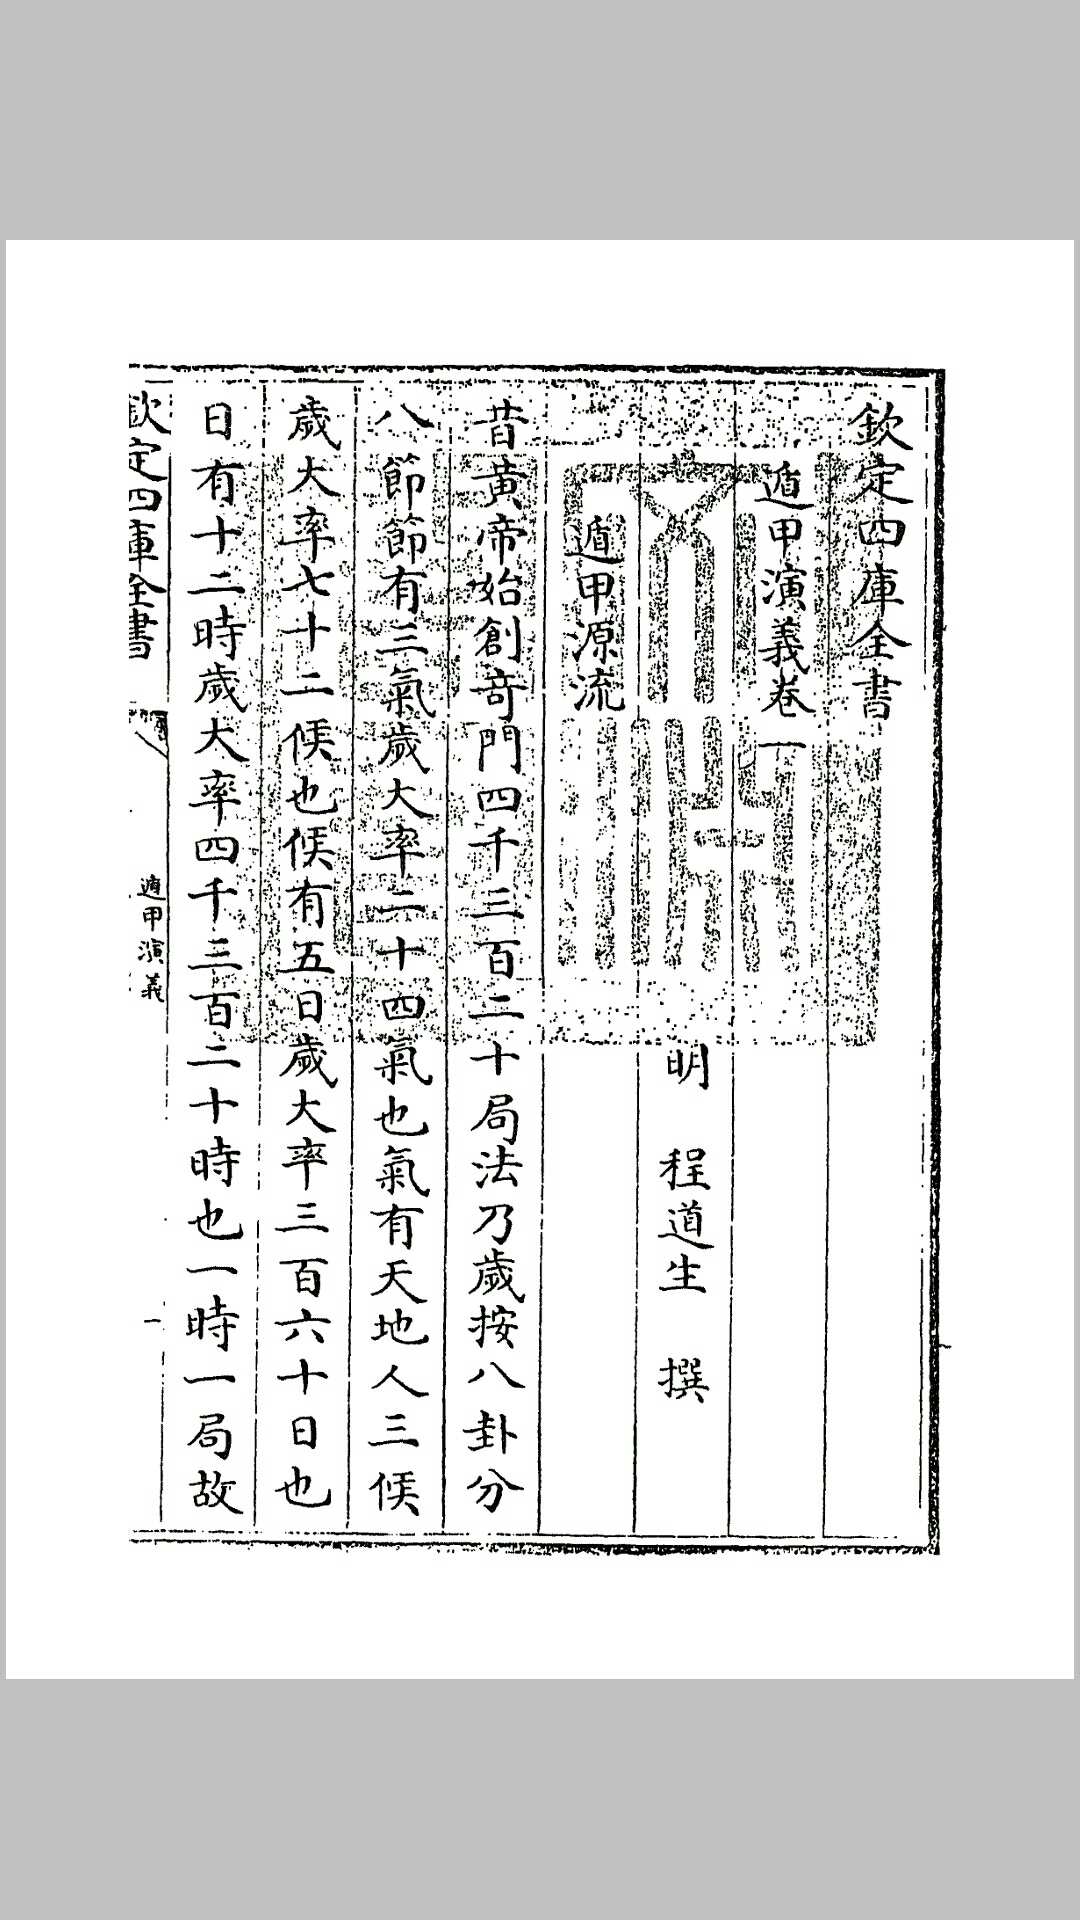 欽定四庫全書
遁甲演義卷一
明 程道生 撰
遁甲源流
昔黃帝始創竒門四千三百二十局法乃歲按八卦分
八節節有三氣歲大率二十四氣也氣有天地人三候
歲大率七十二候也候有五日歲大率三百六十日也
日有十二時歲大率四千三百二十時也一時一局故
欽定四庫全書
遁甲演義
一